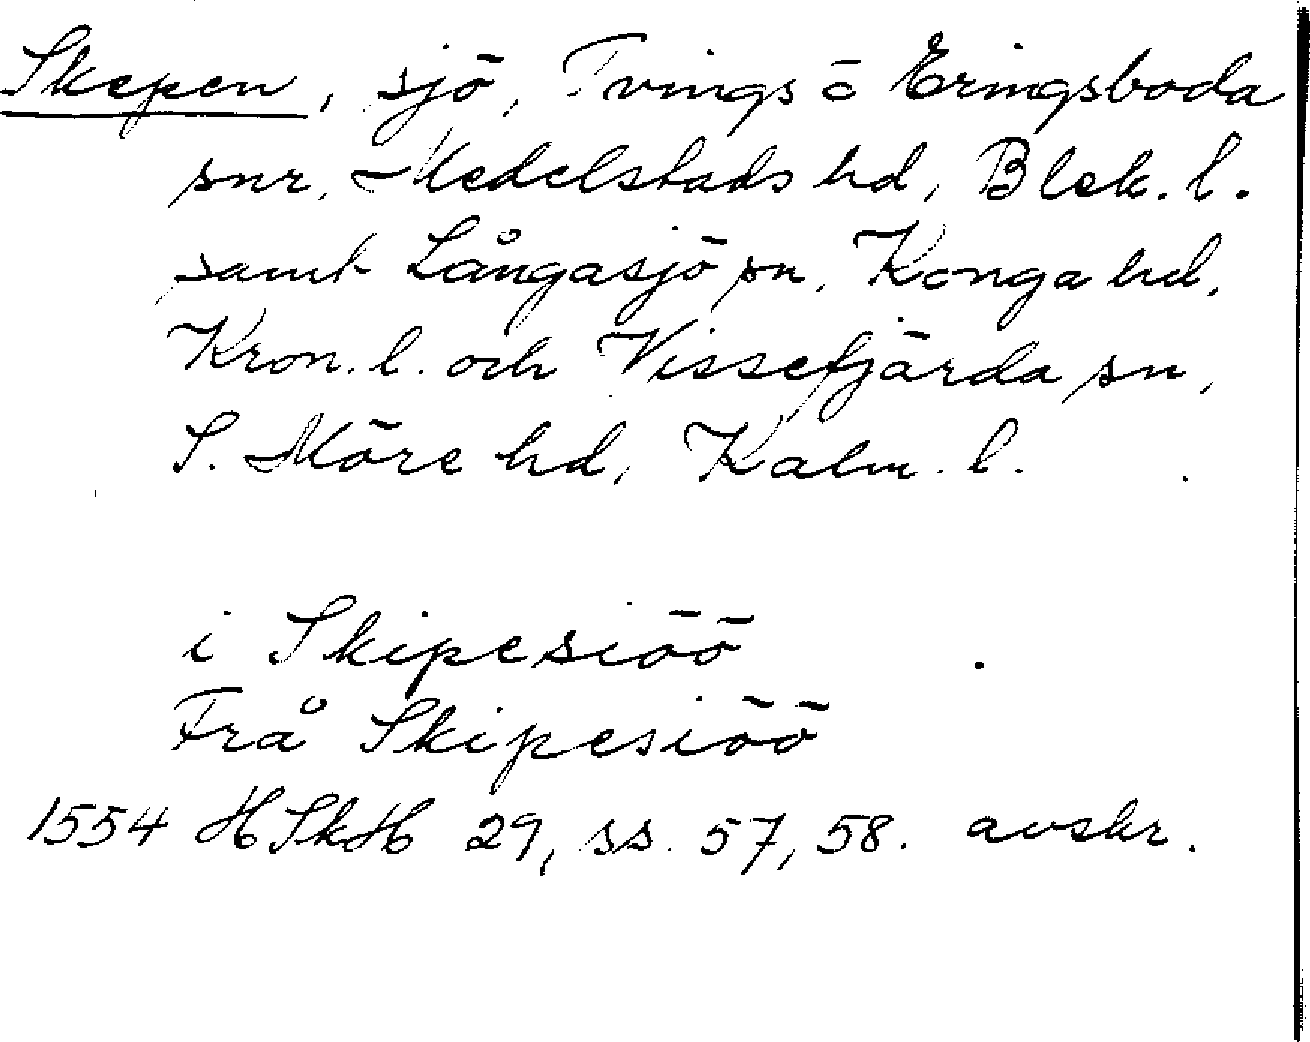 Skepen, sjö, Tvings o Eringsboda
snr, Medelstads hd, Blek. l.
samt Långasjö sn, Konga hd,
Kron. l. och Vissefjärda sn,
S. Möre hd, Kalm. l.
i Skipesiöö
Frå Skipesiöö
1554 HSkH 29, ss. 57, 58. avskr.